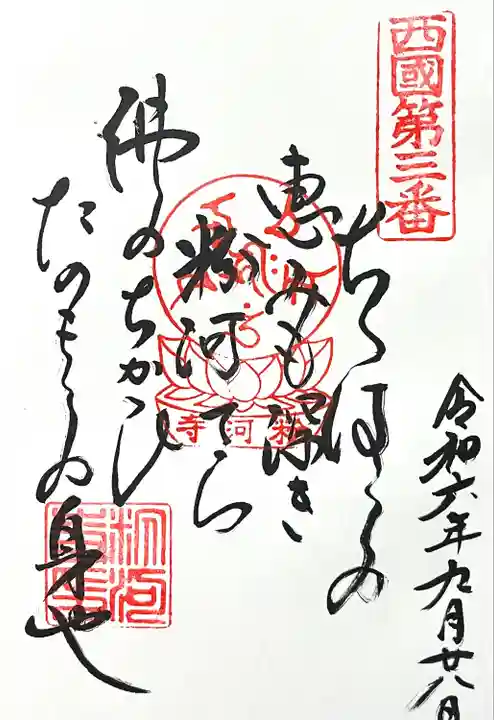 西國第三番
ちゝはゝの
恵みも深き
粉河てら
佛のちかひ
たのもしの身や
粉河寺
令和六年九月廿八日